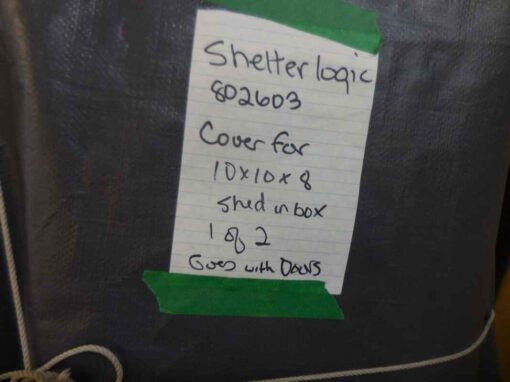 Shelterlogic
802603
Cover for
10x10x8
Shed in box
1 of 2
Goes with Doors